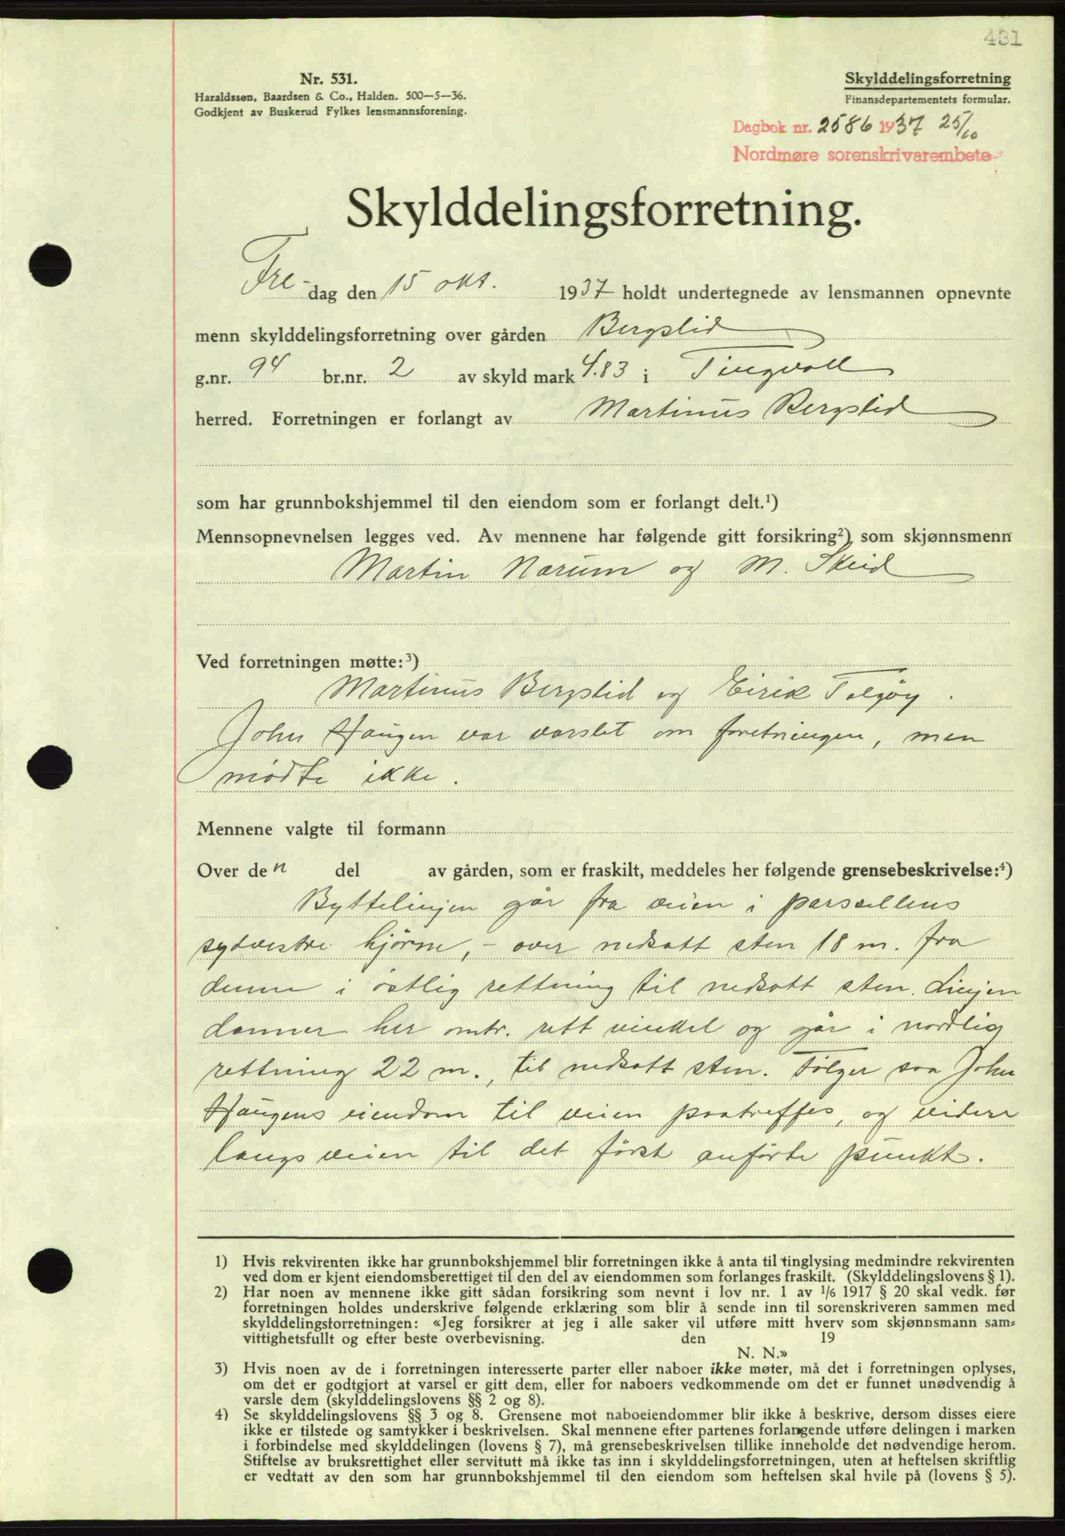 431
Nr. 531.
Haraldssøn, Baardsen & Co., Halden. 500—5—36.
Godkjent av Buskerud Fylkes lensmannsforening.
Skylddelingsforretning
Finansdepartementets formular.
Dagbok nr. 2586 1937 25/10
Nordmøre sorenskrivarembete
Skylddelingsforretning.
Fre-dag den 15 okt. 1937 holdt undertegnede av lensmannen opnevnte
menn skylddelingsforretning over gården Bergslid
g.nr. 94 br.nr. 2 av skyld mark 4.83 i Tingvoll
herred. Forretningen er forlangt av Martinus Bergslid
som har grunnbokshjemmel til den eiendom som er forlangt delt.¹)
Mennsopnevnelsen legges ved. Av mennene har følgende gitt forsikring²) som skjønnsmenn
Martin Narum og M. Skeid
Ved forretningen møtte:³)
Martinus Bergslid og Eirik Tolgøy.
John Haugen var varslet om forretningen, men
mødte ikke.
Mennene valgte til formann
Over den del av gården, som er fraskilt, meddeles her følgende grensebeskrivelse:⁴)
Byttelinjen går fra veien i parsellens
sydvestre hjørne, - over nedsatt sten 18 m. fra
denne i østlig rettning til nedsatt sten. Linjen
danner her omtr. rett vinkel og går i nordlig
rettning 22 m., til nedsatt sten. Følger saa John
Haugens eiendom til veien paatreffes, og videre
langs veien til det først anførte punkt.
1) Hvis rekvirenten ikke har grunnbokshjemmel blir forretningen ikke å anta til tinglysing medmindre rekvirenten
ved dom er kjent eiendomsberettiget til den del av eiendommen som forlanges fraskilt. (Skylddelingslovens § 1).
2) Har noen av mennene ikke gitt sådan forsikring som nevnt i lov nr. 1 av 1/6 1917 § 20 skal vedk. før
forretningen holdes underskrive følgende erklæring som blir å sende inn til sorenskriveren sammen med
skylddelingsforretningen: «Jeg forsikrer at jeg i alle saker vil utføre mitt hverv som skjønnsmann sam-
vittighetsfullt og efter beste overbevisning. den 19
N. N.»
3) Hvis noen av de i forretningen interesserte parter eller naboer ikke møter, må det i forretningen oplyses,
om det er godtgjort at varsel er gitt dem, eller for naboers vedkommende om det er funnet unødvendig å
varsle dem (skylddelingslovens §§ 2 og 8).
4) Se skylddelingslovens §§ 3 og 8. Grensene mot naboeiendommer blir ikke å beskrive, dersom disses eiere
ikke er tilstede og samtykker i beskrivelsen. Skal mennene efter partenes forlangende utføre delingen i marken
i forbindelse med skylddelingen (lovens § 7), må grensebeskrivelsen tillike inneholde det nødvendige herom.
Stiftelse av bruksrettighet eller servitutt må ikke tas inn i skylddelingsforretningen, uten at heftelsen skriftlig
er vedtatt av den som har grunnbokshjemmel til den eiendom som heftelsen skal hvile på (lovens § 5).